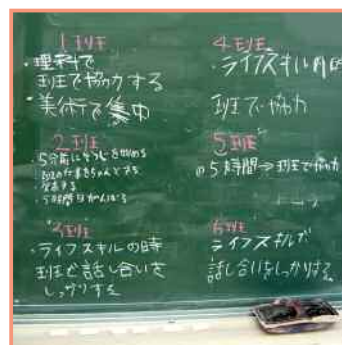 1班
・理科で
班で協力する
・美術で集中
2班
・5分前にそうじを始める
・発表する
3班
・ライフスキルの時
班で話し合いを
しっかりする
4班
・ライフスキル
班で協力
5班
5時間⇒班で協力
6班
ライフスキルで
話し合いをしっかりする